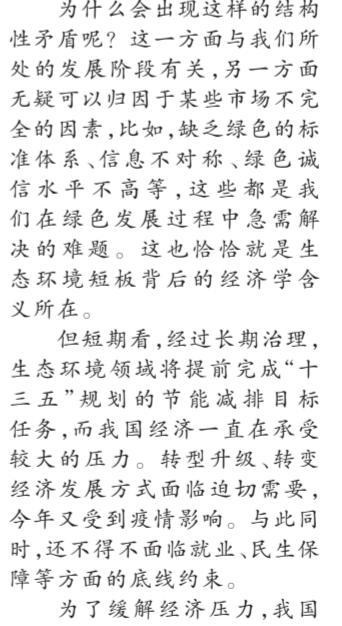 为什么会出现这样的结构
性矛盾呢？这一方面与我们所
处的发展阶段有关，另一方面
无疑可以归因于某些市场不完
全的因素，比如，缺乏绿色的标
准体系、信息不对称、绿色诚
信水平不高等，这些都是我
们在绿色发展过程中急需解
决的难题。这也恰恰就是生
态环境短板背后的经济学含
义所在。
但短期看，经过长期治理，
生态环境领域将提前完成“十
三五”规划的节能减排目标
任务，而我国经济一直在承受
较大的压力。转型升级、转变
经济发展方式面临迫切需要，
今年又受到疫情影响。与此同
时，还不得不面临就业、民生保
障等方面的底线约束。
为了缓解经济压力，我国